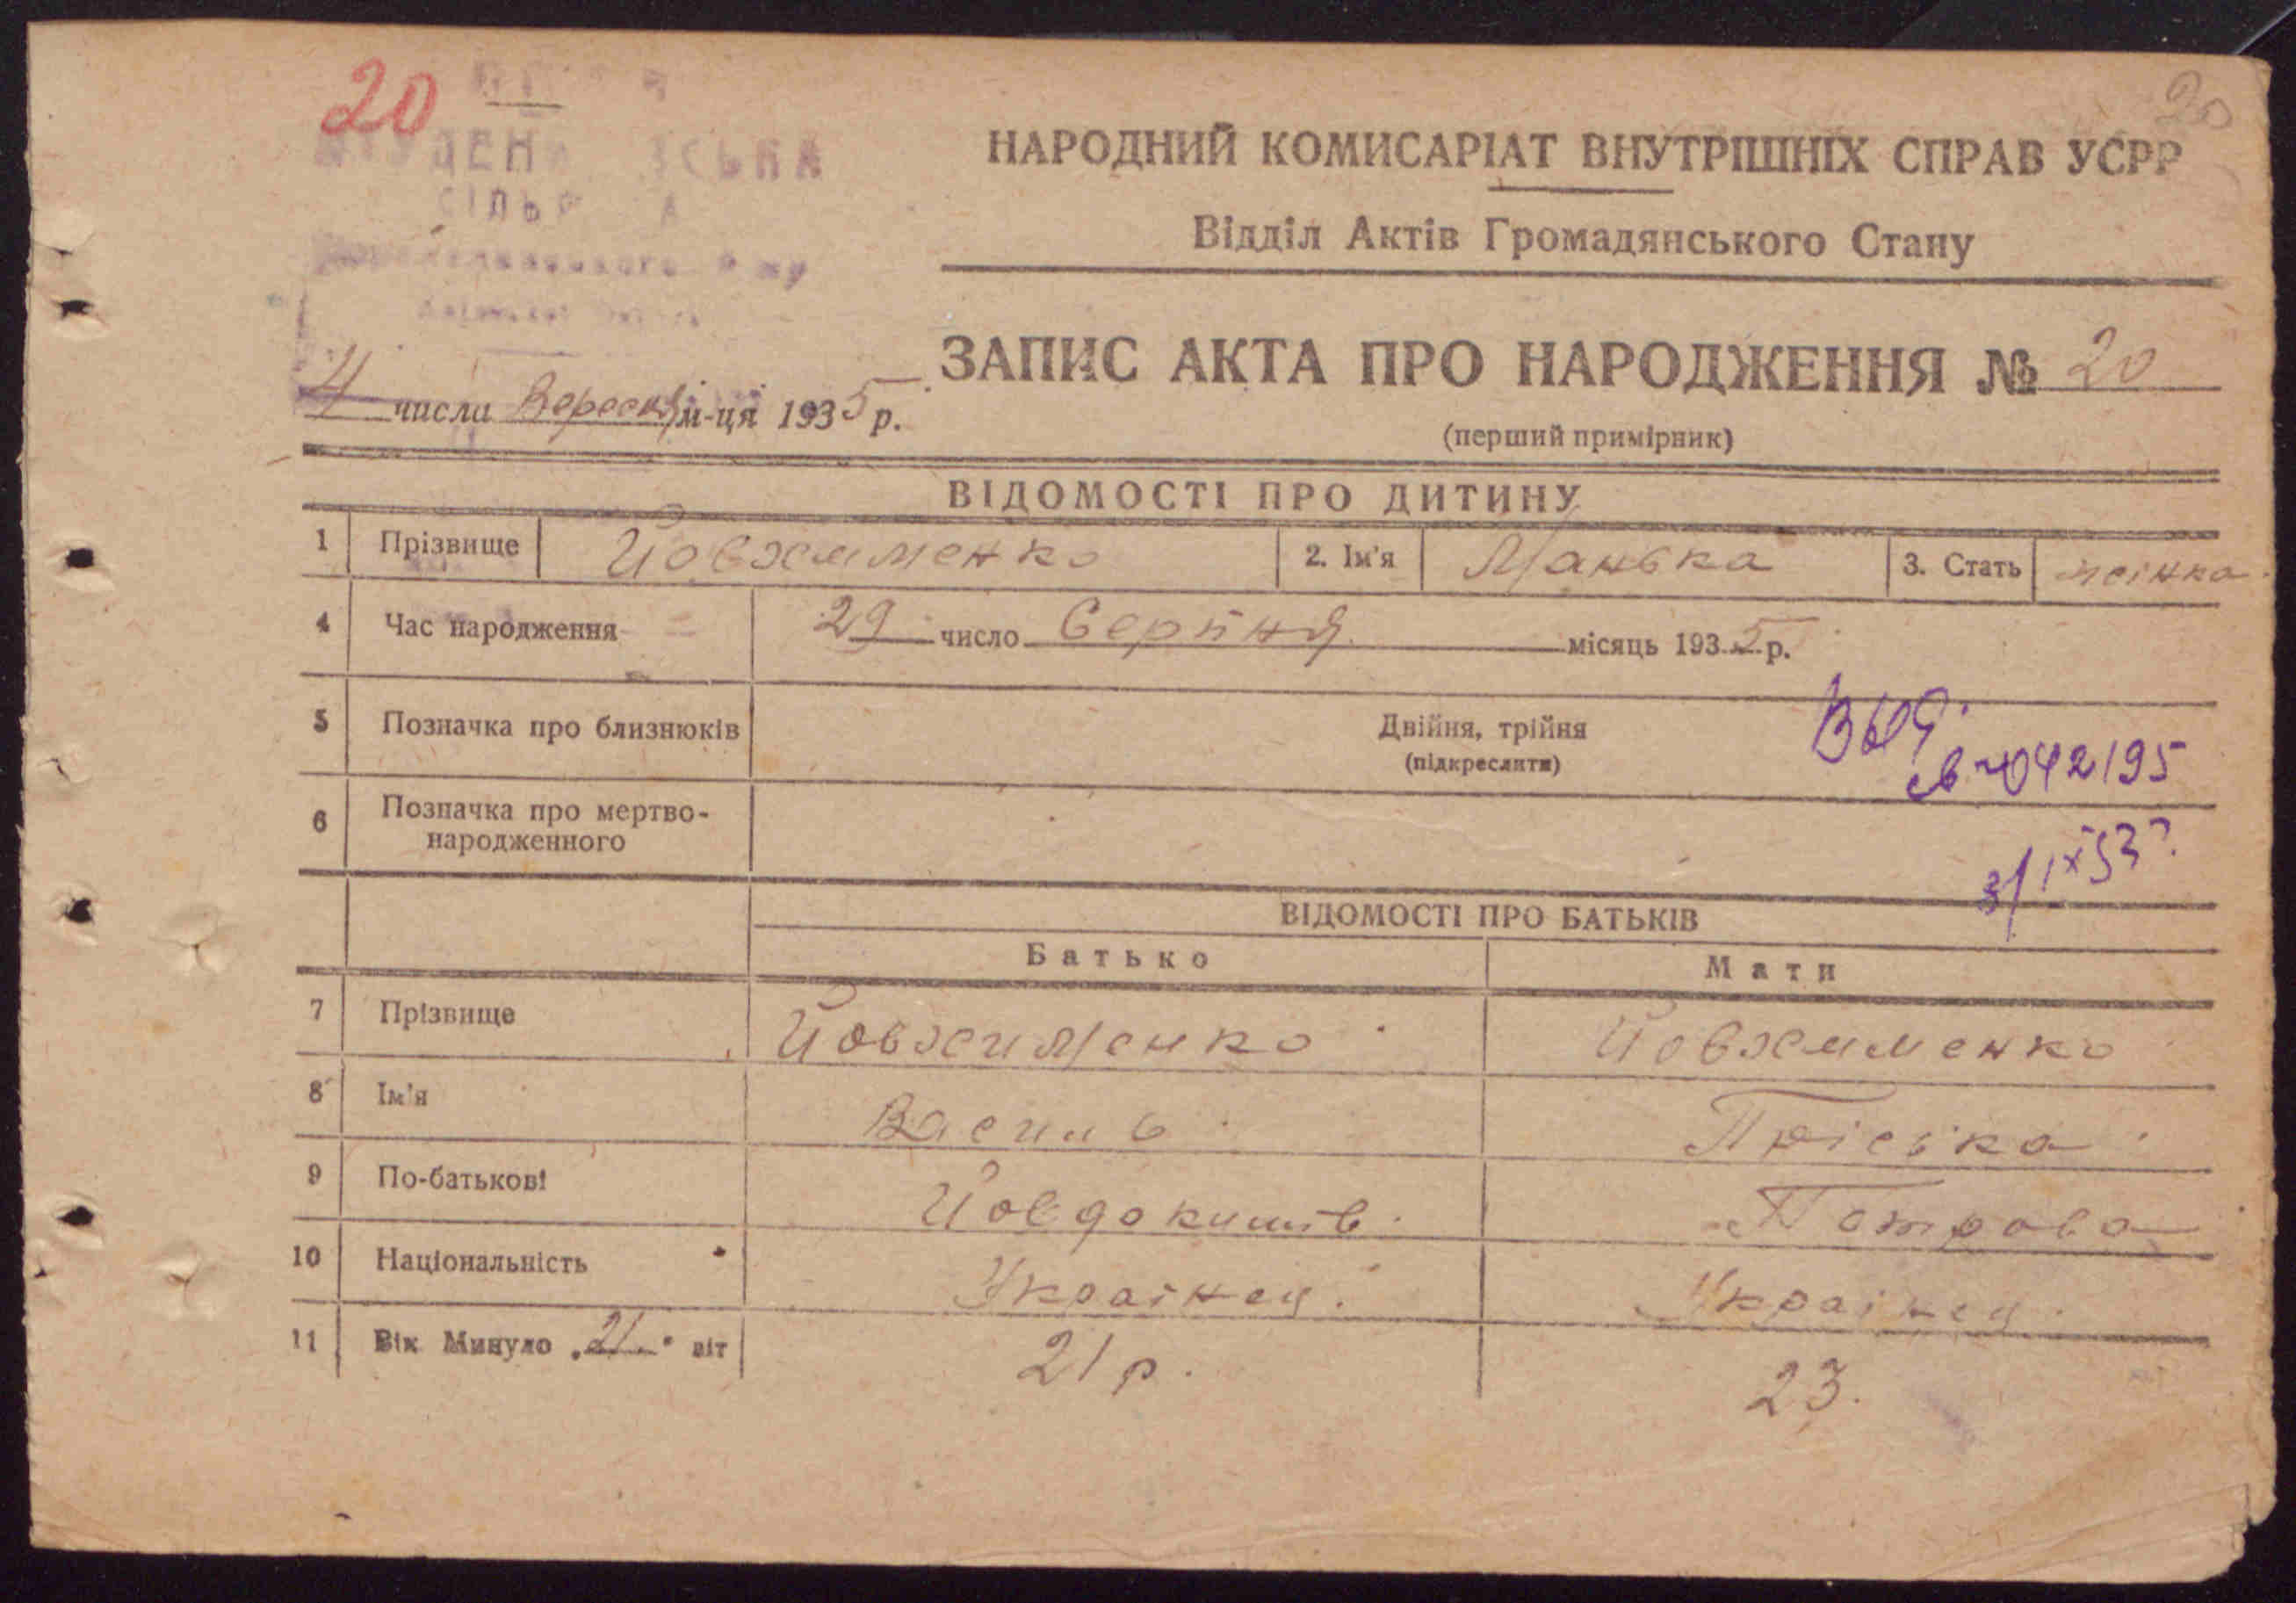 20
20
НАРОДНИЙ КОМИСАРІАТ ВНУТРІШНІХ СПРАВ УСРР
Відділ Актів Громадянського Стану
ЗАПИС АКТА ПРО НАРОДЖЕННЯ № 20
4 числа Вересня м-ця 1935 р.
(перший примірник)
ВІДОМОСТІ ПРО ДИТИНУ
1 Прізвище Йовхименко 2. Ім'я Манька 3. Стать жінка
4 Час народження 29 число Серпня місяць 1935 р.
5 Позначка про близнюків Двійня, трійня
(підкреслити)
042195
6 Позначка про мертво-
народженного
ВІДОМОСТІ ПРО БАТЬКІВ
Батько Мати
7 Прізвище Йовхименко Йовхименко
8 Ім'я Василь Пріська
9 По-батькові Йовдокимів Петрова
10 Національність Українец. Українец.
11 Вік Минуло „21" літ 21 р. 23.